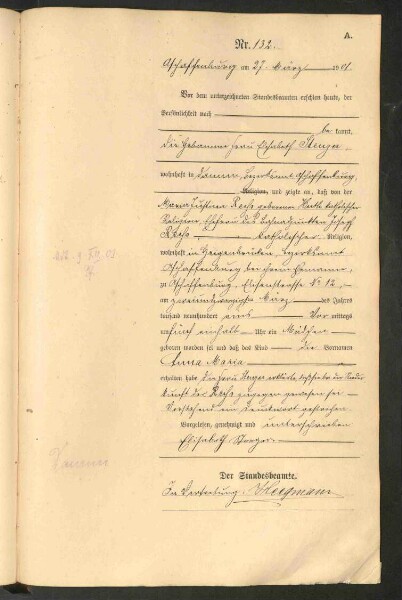 A.
Nr. 132.
Aschaffenburg am 27. März 1901.
Vor dem unterzeichneten Standesbeamten erschien heute, der
Persönlichkeit nach
be kannt,
die Hebamme Frau Elisabeth Stenger
wohnhaft in Damm, Bezirksamt Aschaffenburg
Religion, und zeigte an, daß von der
Maria geborenen katholischer
Religion, Ehefrau des Joseph
katholischer Religion,
wohnhaft in Heigenbrücken, Bezirksamt
Aschaffenburg bei ihrem Ehemann,
zu Aschaffenburg, No 12,
am März des Jahres
tausend neunhundert eins Vor mittags
um fünf einhalb Uhr ein Mädchen
geboren worden sei und daß das Kind die Vornamen
Anna Maria
erhalten habe. Die Frau Stenger erklärte, daß sie bei der Nieder
kunft der zugegen gewesen sei.
Vorstehend ein Druckwort gestrichen.
Vorgelesen, genehmigt und unterschrieben
Elisabeth Stenger
Der Standesbeamte.
In Vertretung: